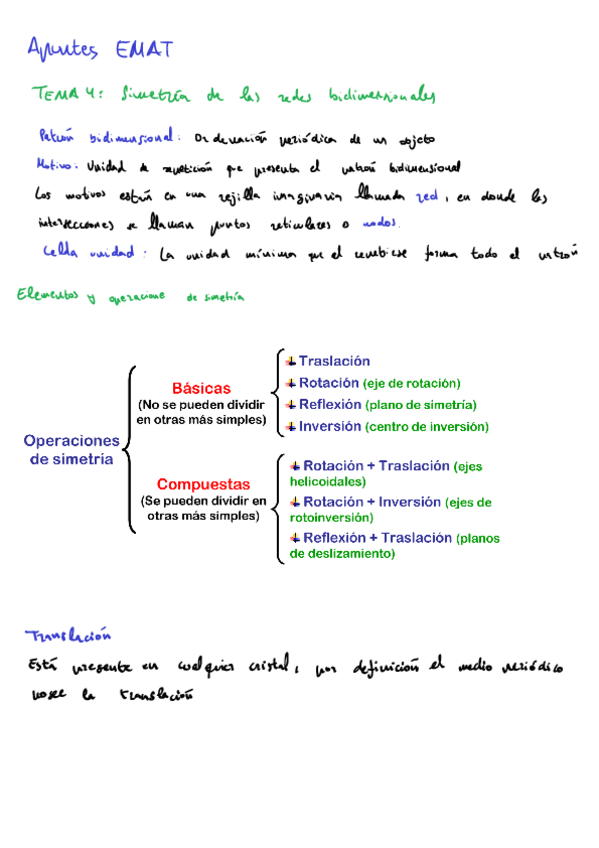 Apuntes EMAT
TEMA 4: Simetría de las redes bidimensionales
Patrón bidimensional: Ordenación periódica de un objeto
Motivo: Unidad de repetición que presenta el patrón bidimensional
Los motivos están en una rejilla imaginaria llamada red, en donde las
intersecciones se llaman puntos reticulares o nodos.
Celda unidad: La unidad mínima que al repetirse forma todo el patrón
Elementos y operacione de simetría
Operaciones
de simetría
Básicas
(No se pueden dividir
en otras más simples)
Traslación
Rotación (eje de rotación)
Reflexión (plano de simetría)
Inversión (centro de inversión)
Compuestas
(Se pueden dividir en
otras más simples)
Rotación + Traslación (ejes
helicoidales)
Rotación + Inversión (ejes de
rotoinversión)
Reflexión + Traslación (planos
de deslizamiento)
Translación
Está presente en cualquier cristal, por definición el medio periódico
posee la translación